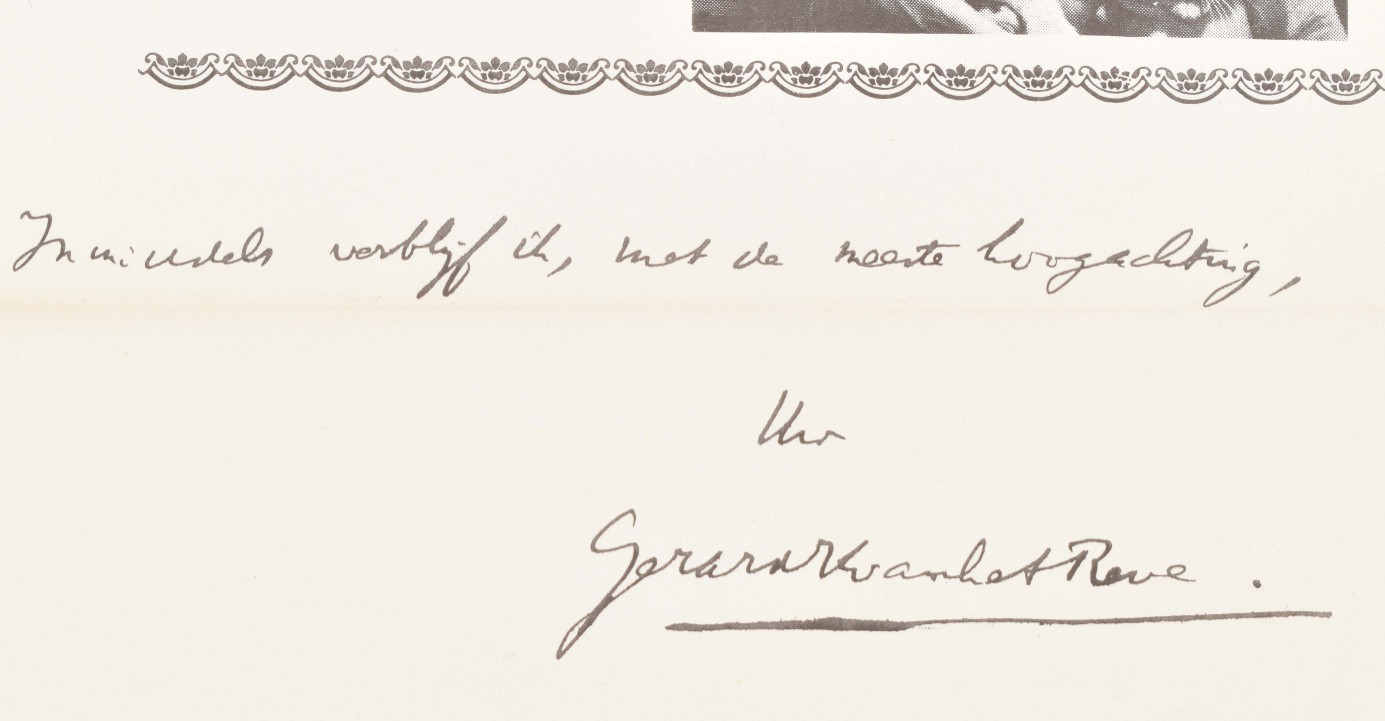 Inmiddels verblijf ik, met de meeste hoogachting,
Uw
Gerard Kvanhet Reve .